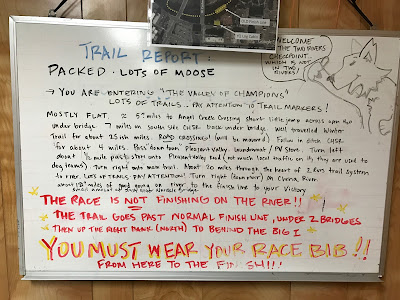 TRAIL REPORT:
PACKED. LOTS OF MOOSE
WELCOME
THE TWO RIVERS
CHECKPOINT
WHICH IS NOT
IN TWO
RIVERS!
→ YOU ARE ENTERING "THE VALLEY OF CHAMPIONS"
LOTS OF TRAILS.. PAY ATTENTION TO TRAIL MARKERS!
MOSTLY FLAT. ≈ 5 miles to Angel Creek Crossing short little jump across and
under bridge. 7 miles on south side CHSR. back under bridge. Well travelled Winter
Trail for about 7.5 mi. ROAD CROSSINGS! (will be manned) Follow in ditch CHSR
for about 4 miles. Pass down from Pleasant Valley Laundromat / PV Store. Turn left
about ½ mile past store onto Pleasant Valley Road (not much local traffic on it, they are used to
dog teams). Turn right onto main trail. About 20 miles through the heart of 2 Rivers trail system
to river. LOTS OF TRAILS. PAY ATTENTION! Turn right (down river) on Chena River.
about 18 miles of good going on river to the finish line to your Victory
THE RACE IS NOT FINISHING ON THE RIVER!!
THE TRAIL GOES PAST NORMAL FINISH LINE, UNDER 2 BRIDGES
THEN UP THE RIGHT BANK (NORTH) TO BEHIND THE BIG I
YOU MUST WEAR YOUR RACE BIB!!
FROM HERE TO THE FINISH!!!